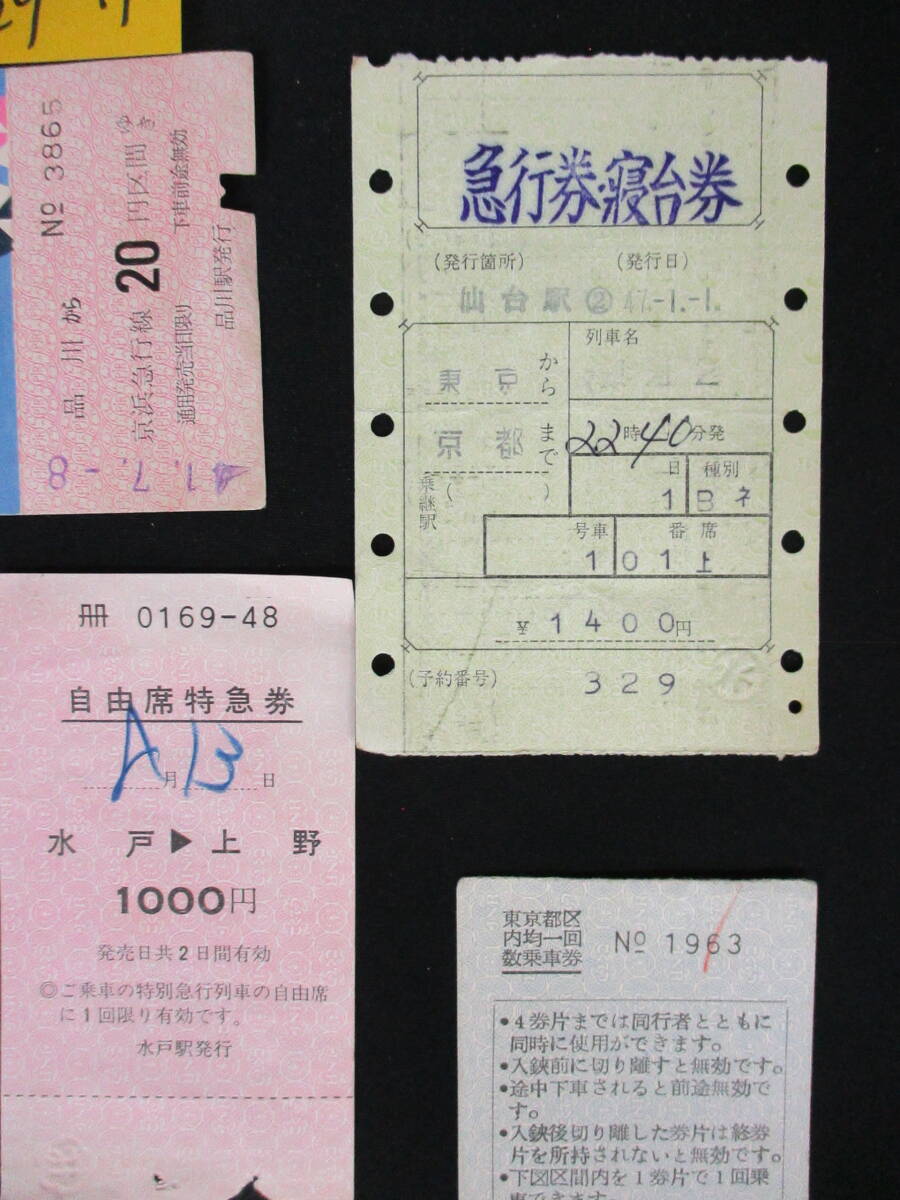 No 3865
品川から
京浜急行線20円区間ゆき
通用発売当日限り 下車前途無効
品川駅発行
41.7.-8
急行券・寝台券
(発行箇所) (発行日)
仙台駅② 47.-1.-1.
東京から
列車名
京都まで
22時40分発
乗継駅( )
日 種別
1 Bネ
号車 番席
1 01上
¥1400円
(予約番号) 329
冊 0169-48
自由席特急券
月13日
水戸▶上野
1000円
発売日共2日間有効
◎ご乗車の特別急行列車の自由席
に1回限り有効です。
水戸駅発行
東京都区
内均一回
数乗車券
No 1963
•4券片までは同行者とともに
同時に使用ができます。
•入鋏前に切り離すと無効です。
•途中下車されると前途無効で
す。
•入鋏後切り離した券片は終券
片を所持されないと無効です。
•下図区間内を1券片で1回乗
車できます。